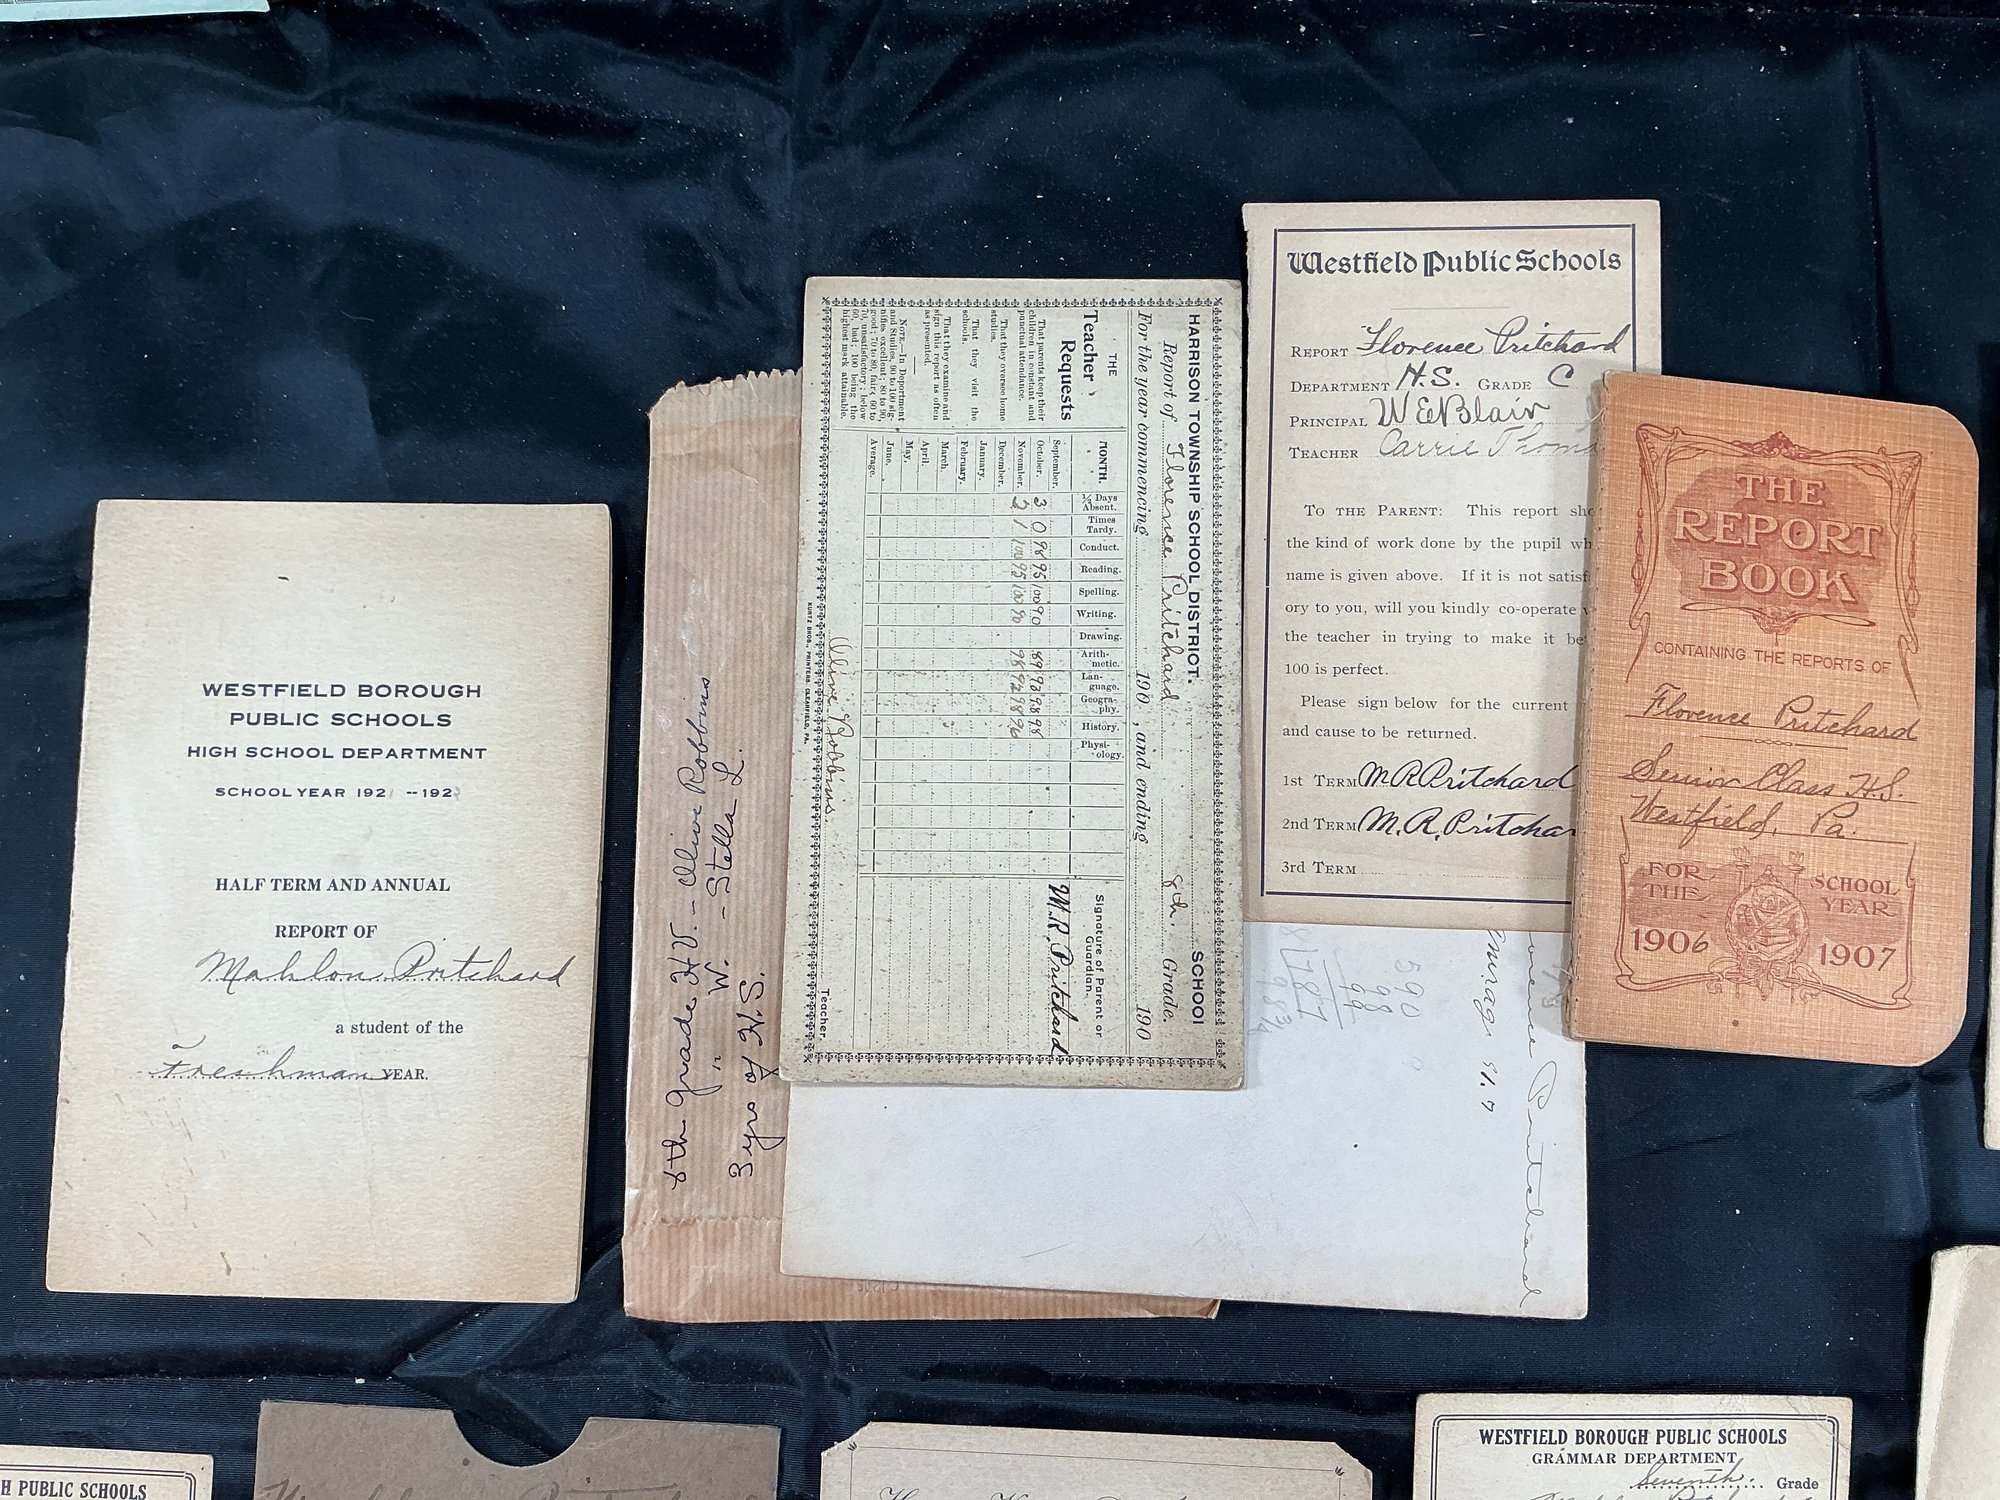 WESTFIELD BOROUGH
PUBLIC SCHOOLS
HIGH SCHOOL DEPARTMENT
SCHOOL YEAR 192 --192
HALF TERM AND ANNUAL
REPORT OF
Mahlon Pritchard
a student of the
Freshman YEAR.
8th grade H.V. - Olive Robbins
" W. - Stella L.
3 yrs of H.S.
HARRISON TOWNSHIP SCHOOL DISTRICT. SCHOOL
Report of Florence Pritchard 8th. Grade.
For the year commencing 190 , and ending 190
THE
Teacher
Requests
That parents keep their
children in constant and
punctual attendance.
That they oversee home
studies.
That they visit the
schools.
That they examine and
sign this report as often
as presented.
NOTE.—In Department
and Studies, 90 to 100 sig-
nifies excellent; 80 to 90,
good; 70 to 80, fair; 60 to
70, unsatisfactory; below
60, bad; 100 being the
highest mark attainable.
MONTH. ½ Days Absent. Times Tardy. Conduct. Reading. Spelling. Writing. Drawing. Arith-metic. Lan-guage. Geogra-phy. History. Physi-ology. Signature of Parent or Guardian.
September.
October. 3 0 98 95 100 90 89 93 98 98 M.R. Pritchard
November. 2 1 100 95 100 90 98 92 98 96
December.
January.
February.
March.
April.
May.
June.
Average.
Olive Robbins. Teacher.
KURTZ BROS., PRINTERS, CLEARFIELD, PA.
Westfield Public Schools
REPORT Florence Pritchard
DEPARTMENT H.S. GRADE C
PRINCIPAL W E Blair
TEACHER Carrie Thom
TO THE PARENT: This report sho
the kind of work done by the pupil wh
name is given above. If it is not satisf
ory to you, will you kindly co-operate
the teacher in trying to make it be
100 is perfect.
Please sign below for the current
and cause to be returned.
1st TERM M R Pritchard
2nd TERM M. R. Pritchar
3rd TERM
THE
REPORT
BOOK
CONTAINING THE REPORTS OF
Florence Pritchard
Senior Class H.S.
Westfield, Pa.
FOR THE SCHOOL YEAR
1906 1907
orence Pritchard
590
98
99
WESTFIELD BOROUGH PUBLIC SCHOOLS
GRAMMAR DEPARTMENT
Seventh. Grade
H PUBLIC SCHOOLS